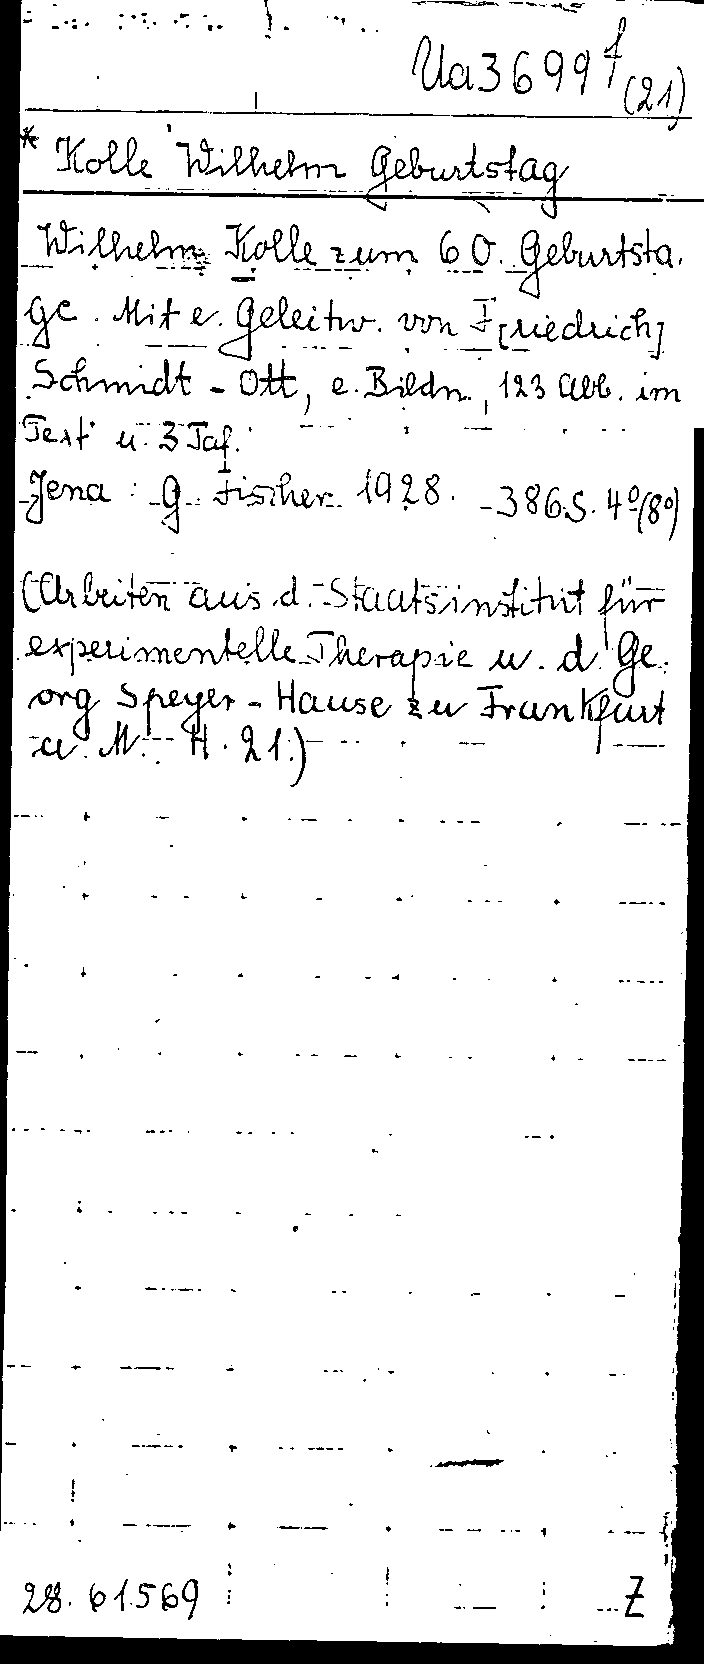 Ua 3699 f (21)
* Kolle Wilhelm Geburtstag
Wilhelm Kolle zum 60. Geburtsta-
ge. Mit e. Geleitw. von F[riedrich]
Schmidt-Ott, e. Bildn., 123 Abb. im
Text u. 3 Taf.
Jena: G. Fischer 1928. 386 S. 4°(8°)
(Arbeiten aus d. Staatsinstitut für
experimentelle Therapie u. d. Ge-
org Speyer-Hause zu Frankfurt
a. M. H. 21.)
28. 61569 Z